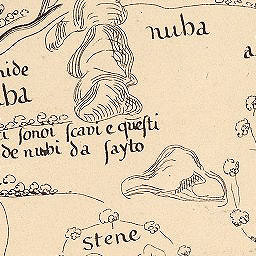 nuba
a
nide
ba
i sonoi scavi e questi
de nubi da sayto
stene